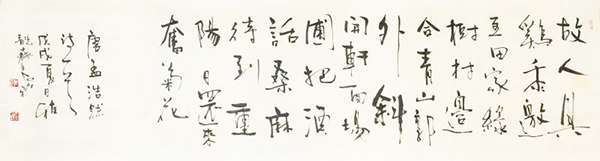 故人具
雞黍邀
至田家綠
樹村邊
合青山郭
外斜
開軒面場
圃把酒
話桑麻
待到重
陽日還來
菊花
唐孟浩然
詩一首
戊戌夏日